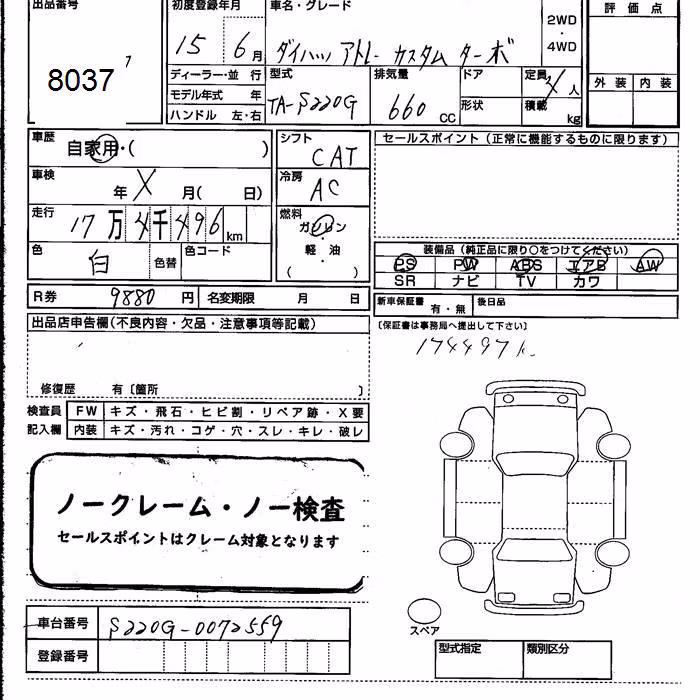 出品番号 8037
初度登録年月 15 6月
車名・グレード ダイハツ アトレー カスタム ターボ
2WD・4WD
評価点
外装 内装
ディーラー・並行
モデル年式 年
ハンドル 左・右
型式 TA-S220G
排気量 660 CC
ドア
形状
定員 4人
積載 kg
車歴 自家用・( )
シフト CAT
セールスポイント(正常に機能するものに限ります)
車検 年 X 月( 日)
冷房 AC
走行 17万4千496km
燃料 ガソリン・軽油・( )
色 白 色替 色コード
装備品(純正品に限り○をつけてください)
PS PW ABS エアB AW
SR ナビ TV カワ
R券 9880円 名変期限 月 日
新車保証書 有・無 後日品
出品店申告欄(不良内容・欠品・注意事項等記載)
(保証書は事務局へ提出して下さい)
174497k
修復歴 有〔箇所 〕
検査員記入欄
FW キズ・飛石・ヒビ割・リペア跡・X要
内装 キズ・汚れ・コゲ・穴・スレ・キレ・破レ
ノークレーム・ノー検査
セールスポイントはクレーム対象となります
スペア
車台番号 S220G-0072559
登録番号
型式指定 類別区分